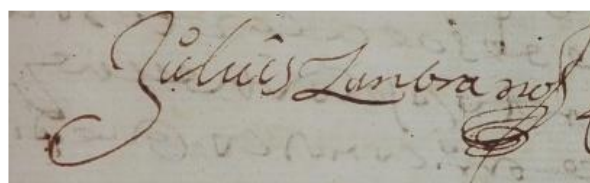 Juº luis Zanbrano